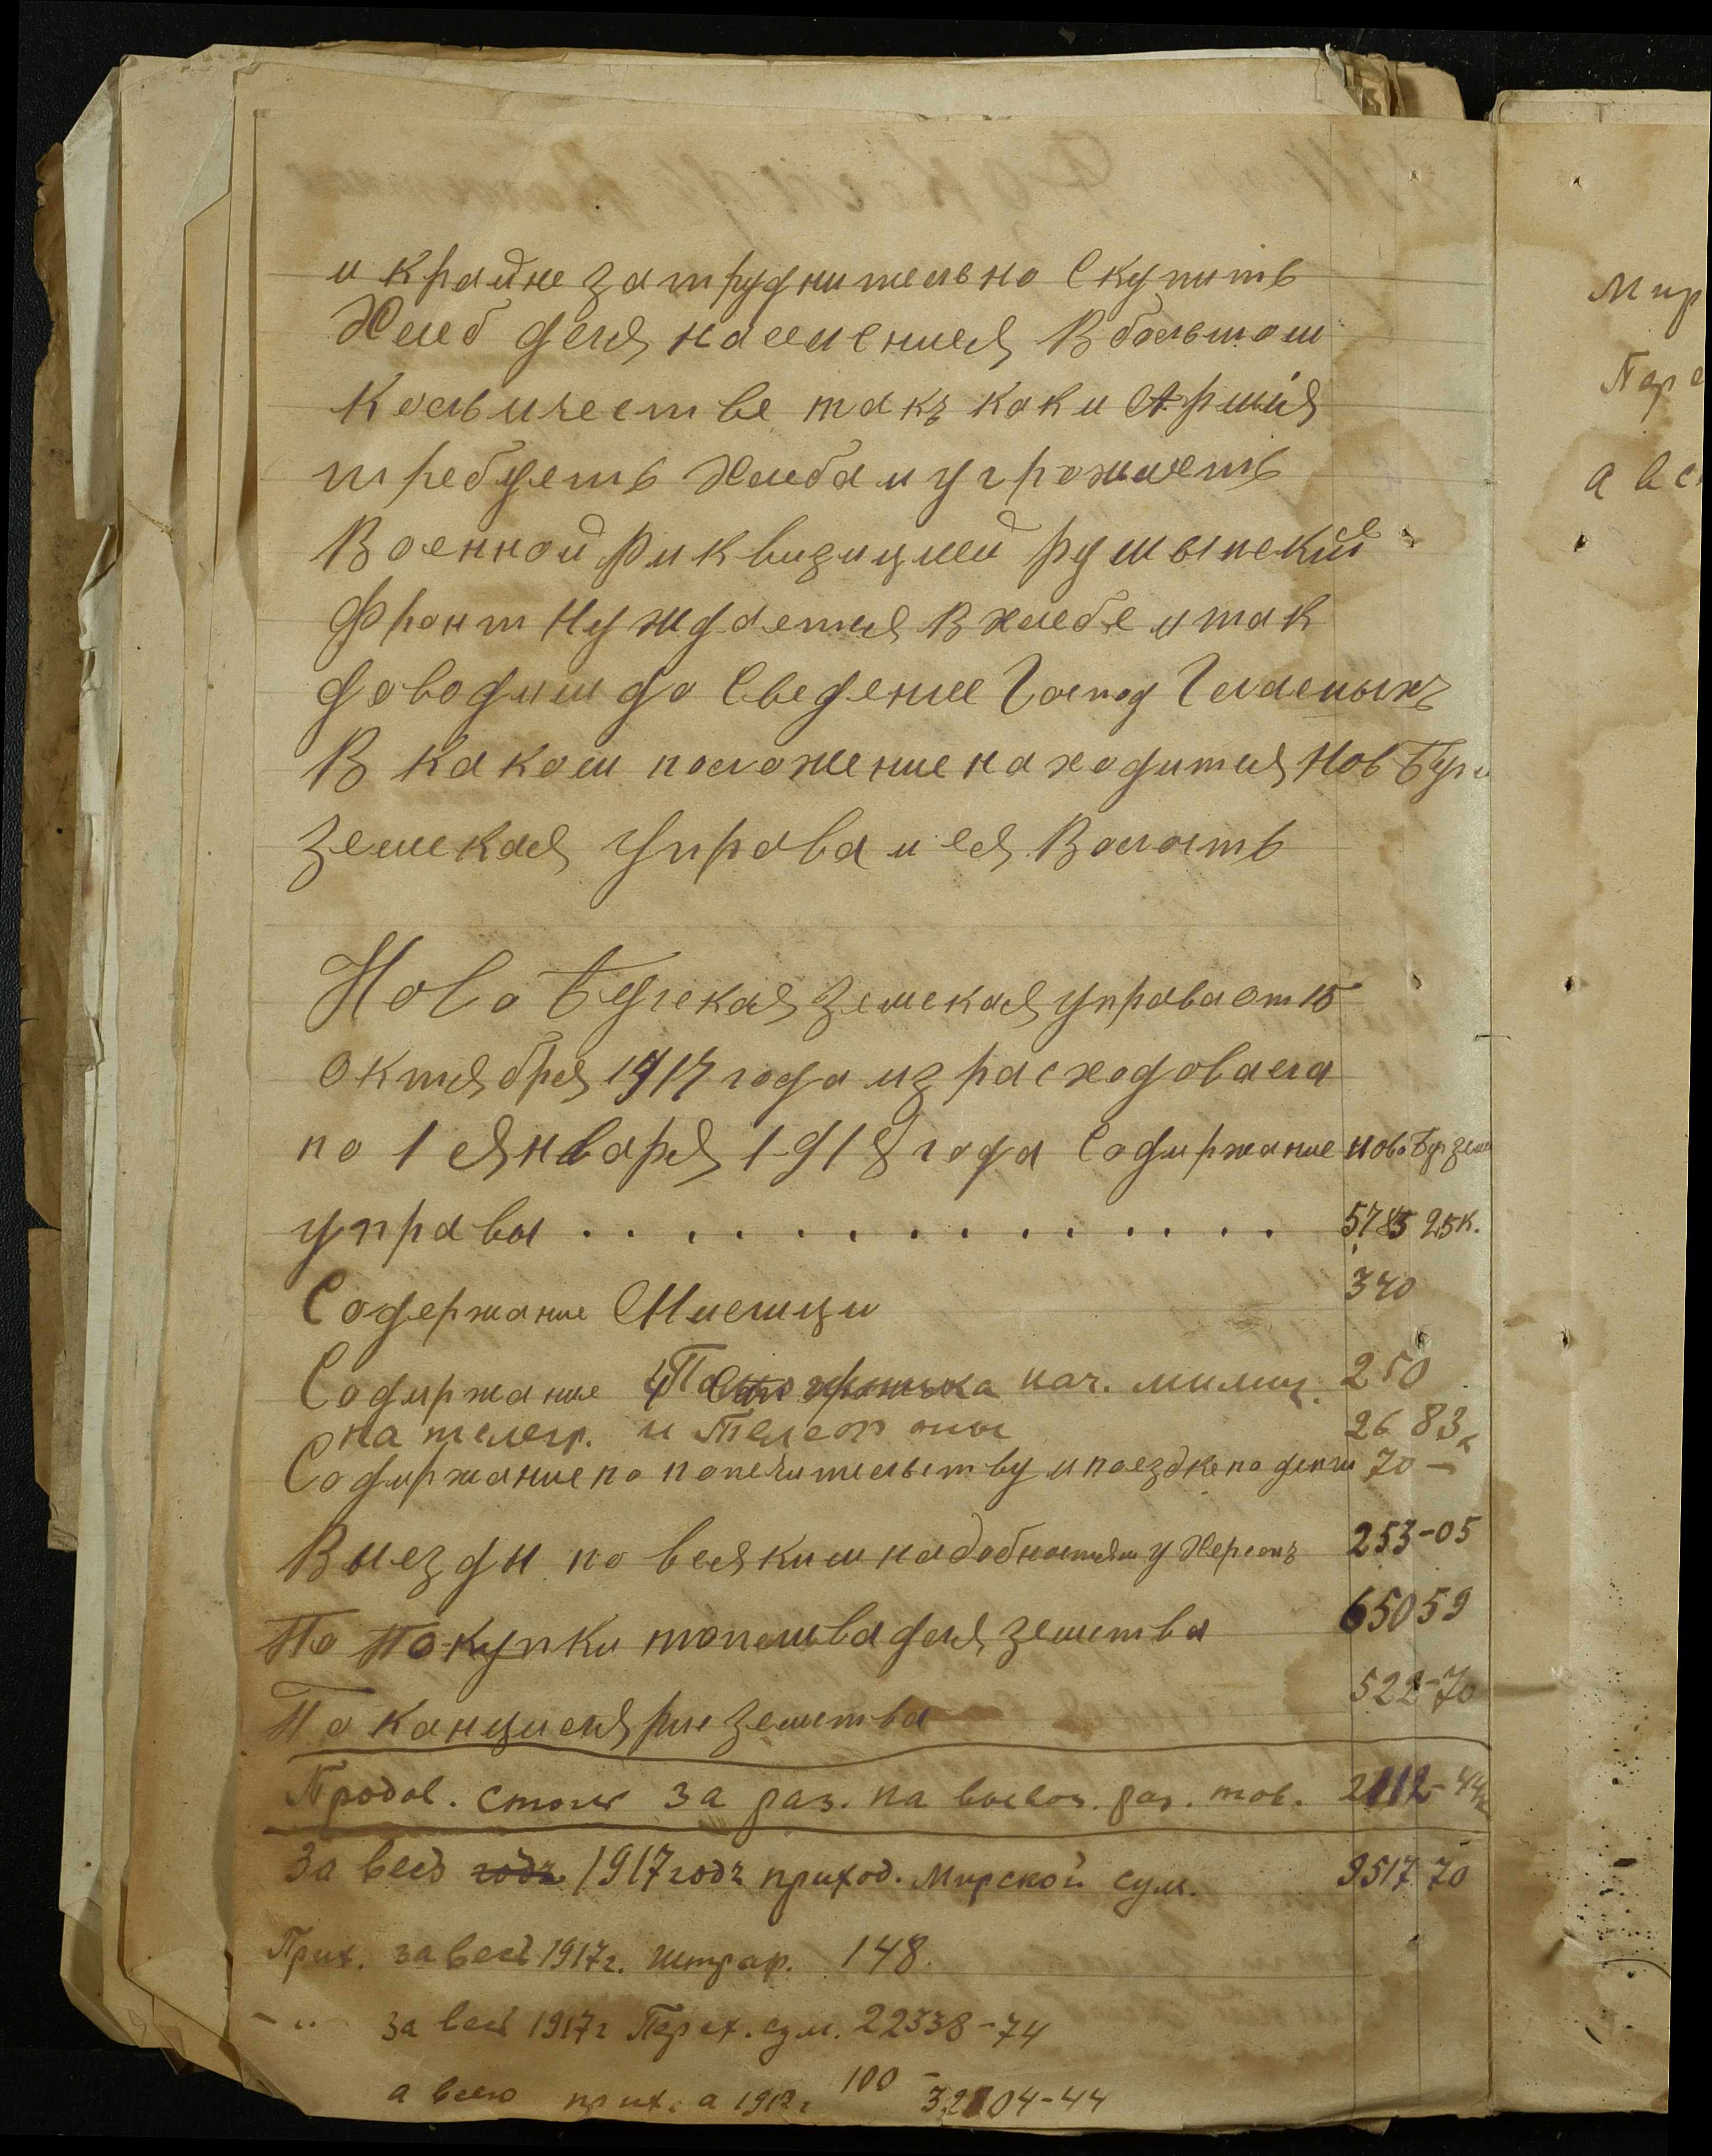 и крайне затруднительно Скупить
Хлеб для населения В большом
Количестве такъ как и Армія
требуеть Хлеба и угрожаеть
Военной риквизицией румынский
Фронт Нуждается В хлебе и так
доводим до Сведение Господ Гласныхъ
В каком положение находится Нов Буг
Земская Управа и ея Волость
Ново Бугская Земская управа от 15
октября 1917 года израсходовала
по 1 Января 1918 года Содиржание Ново Буг зем
управы . . . . . . . . . . . . . . 5785 25к.
Содержание Милици 340
Содиржание нач. милиц. 250
на телегр. и Телефоны 26 83к
Содиржание по попечительству и поездке по делам 70 -
Выезды по всяким надобностям у Херсонъ 253-05
По Покупки топлива для земства 650 59
По канцилярие земства 522-70
Продов. столъ за раз. на вывоз. раз. тов. 2112-44
За весь годъ 1917 годъ приход. Мирской сум. 9517 70
Прих. за весь 1917г. штраф. 148.
-"- за весь 1917г Перех. сум. 22338-74
100 -
а всего прих. а 1917г 32104-44
Мир
Пере
а все